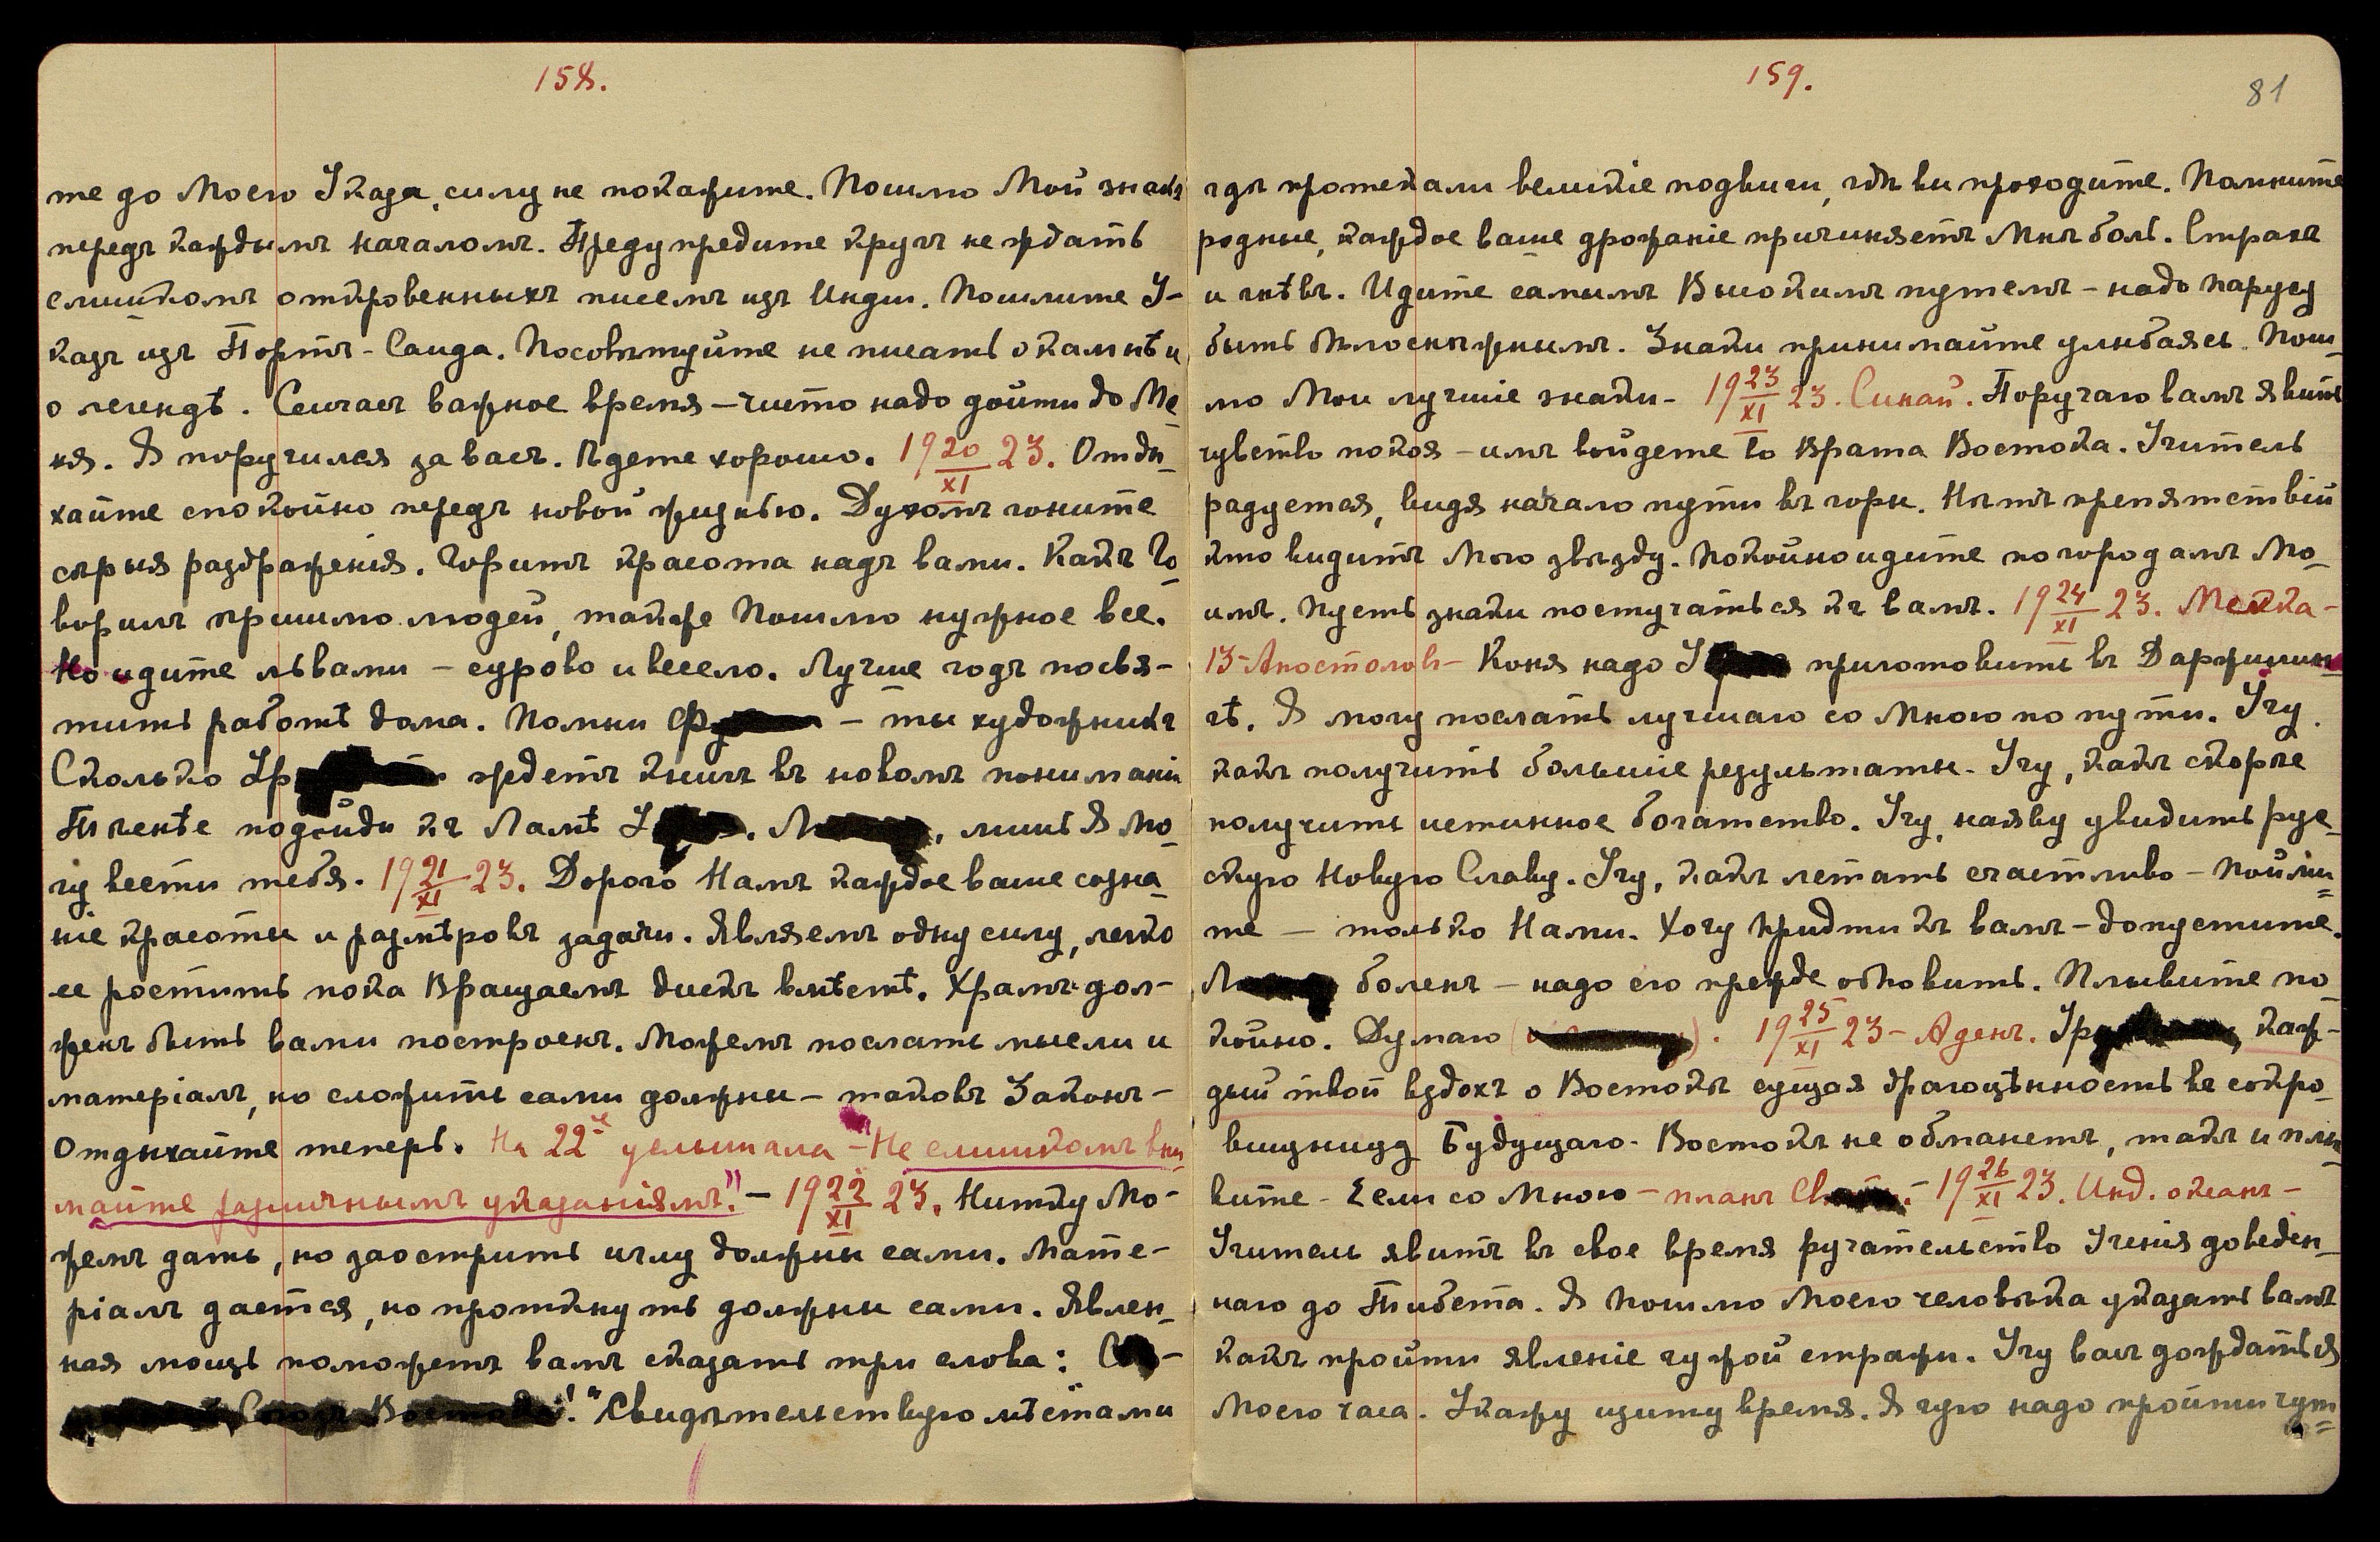 158.
те до Моего Указа, силу не покажите. Пошлю Мой знакъ
передъ каждымъ началомъ. Предупредите кругъ не ждать
слишкомъ откровенныхъ писемъ изъ Индіи. Пошлите У-
казъ изъ Портъ-Саида. Посовѣтуйте не писать о камнѣ и
о легендѣ. Сейчасъ важное время – чисто надо дойти до Ме-
ня. Я поручился за васъ. Ѣдете хорошо. 19 20/XI 23. Отды-
хайте спокойно передъ новой жизнью. Духомъ гоните
сѣрыя раздраженія. Горитъ красота надъ вами. Какъ Го-
ворилъ пришлю людей, также Пошлю нужное все.
Но идите львами – сурово и весело. Лучше годъ посвя-
тить работѣ дома. Помни – ты художникъ
Сколько ждетъ книгъ въ новомъ пониманіи
подойди къ Ламѣ лишь Я мо-
гу вести тебя. 19 21/XI 23. Дорого Намъ каждое ваше созна-
ніе красоты и размѣровъ задачи. Являемъ одну силу, легко
ее ростить пока Вращаемъ дискъ вмѣстѣ. Храмъ дол-
женъ быть вами построенъ. Можемъ послать мысли и
матеріалъ, но сложить сами должны – таковъ Законъ –
Отдыхайте теперь. На 22е услышала – "Не слишкомъ вни-
майте различнымъ указаніямъ." – 19 22/XI 23. Нитку Мо-
жемъ дать, но заострить иглу должны сами. Мате-
ріалъ дается, но проткнуть должны сами. Явлен-
ная мощь поможетъ вамъ сказать три слова:
Свидѣтельствую мѣстами
159.
81
гдѣ протекали великіе подвиги, гдѣ вы проходите. Помните
родные, каждое ваше дрожаніе причиняетъ Мнѣ боль. Страхъ
и гнѣвъ. Идите самымъ Высокимъ путемъ – надо парусу
быть бѣлоснѣжнымъ. Знаки принимайте улыбаясь. Пош-
лю Мои лучшіе знаки – 19 23/XI 23. Синай. Поручаю вамъ явить
чувство покоя – имъ войдете во Врата Востока. Учитель
радуется, видя начало пути въ горы. Нѣтъ препятствій
кто видитъ Мою звѣзду. Покойно идите по городамъ Мо-
имъ. Пусть знаки постучаться къ вамъ. 19 24/XI 23. Мекка –
13-Апостоловъ – Коня надо приготовить въ Даржилин-
гѣ. Я могу послать лучшаго со Мною по пути. Учу
какъ получить большіе результаты. Учу, какъ скорѣе
получить истинное богатство. Учу, наяву увидить рус-
скую Новую Славу. Учу, какъ летать счастливо – Пойми-
те – только Нами. Хочу придти къ вамъ – допустите.
боленъ – надо его прежде обновить. Плывите по-
койно. Думаю 19 25/XI 23 – Аденъ. каж-
дый твой вздохъ о Востокѣ сущая драгоцѣнность въ сокро-
вищницу Будущаго. Востокъ не обманетъ, такъ и плы-
вите – Если со Мною – планъ – 19 26/XI 23. Инд. океанъ –
Учитель явитъ въ свое время ручательство Ученія доведен-
наго до Тибета. Я Пошлю Моего человѣка указать вамъ
какъ пройти явленіе чужой стражи. Учу васъ дождаться
Моего часа. Укажу щиту время. Я чую надо пройти чут-